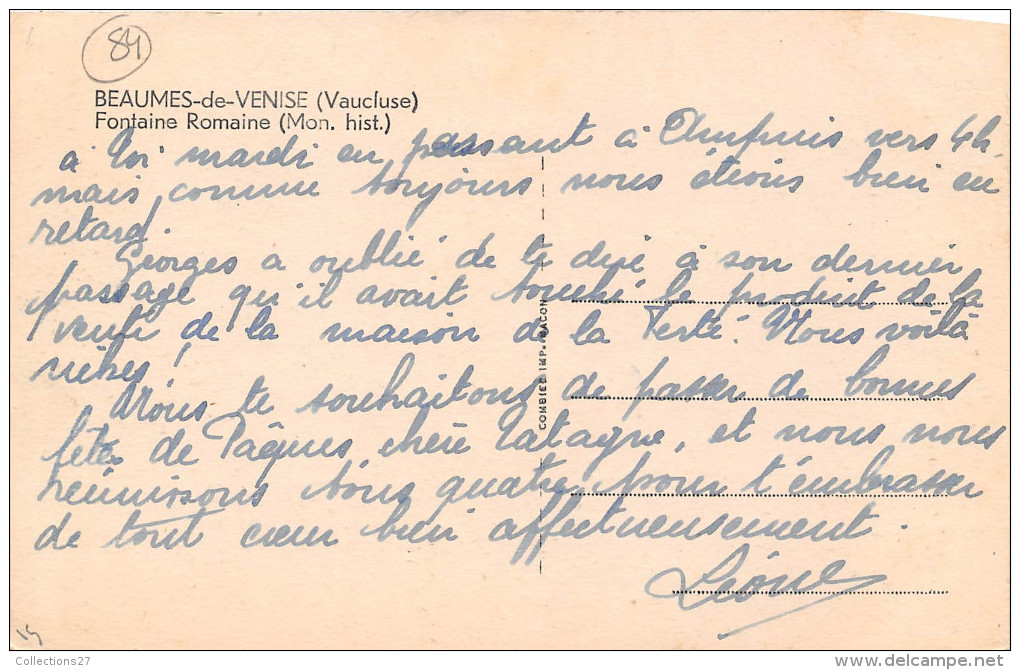 84
BEAUMES-de-VENISE (Vaucluse)
Fontaine Romaine (Mon. hist.)
à toi mardi en passant à Ampuis vers 4h
mais comme toujours nous étions bien en
retard.
Georges a oublié de te dire à son dernier
passage qu'il avait touché le produit de la
vente de la maison de la Ferté. Nous voilà
riches!
Nous te souhaitons de passer de bonnes
fêtes de Pâques, chère Tatagne, et nous nous
réunissons tous quatre pour t'embrasser
de tout cœur bien affectueusement.
Léone
COMBIER IMP. MACON
15
Collections27
www.delcampe.net